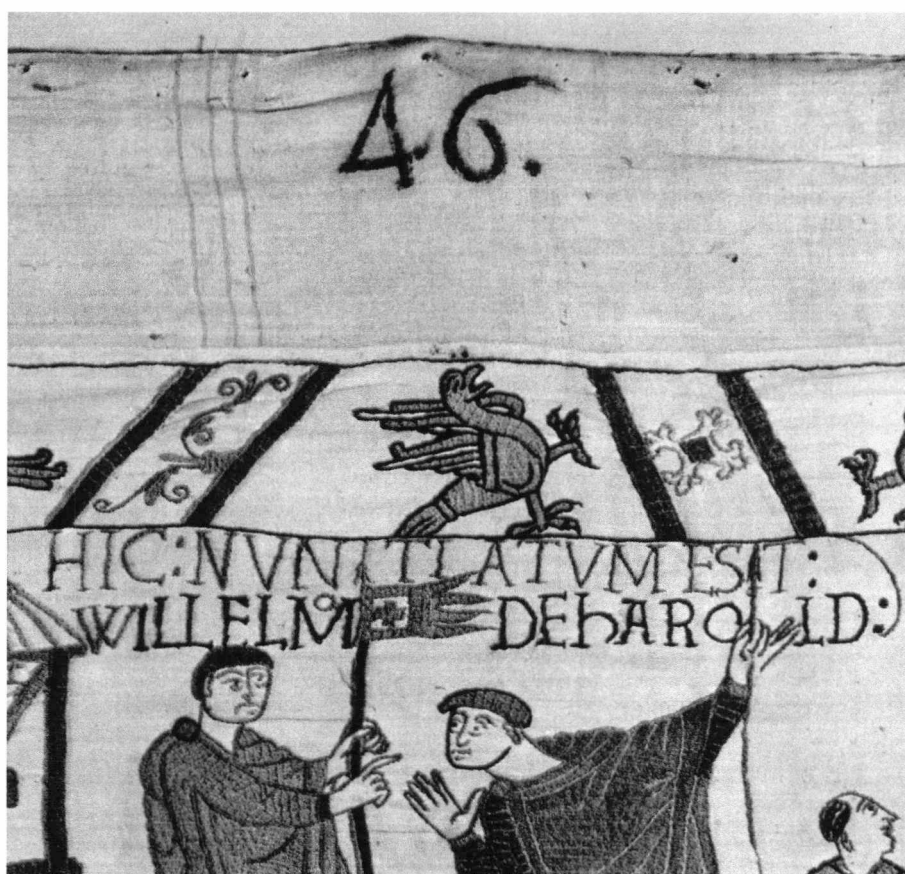 46.
HIC: NVNTIATVM EST:
WILLELMO DE hAROLD: